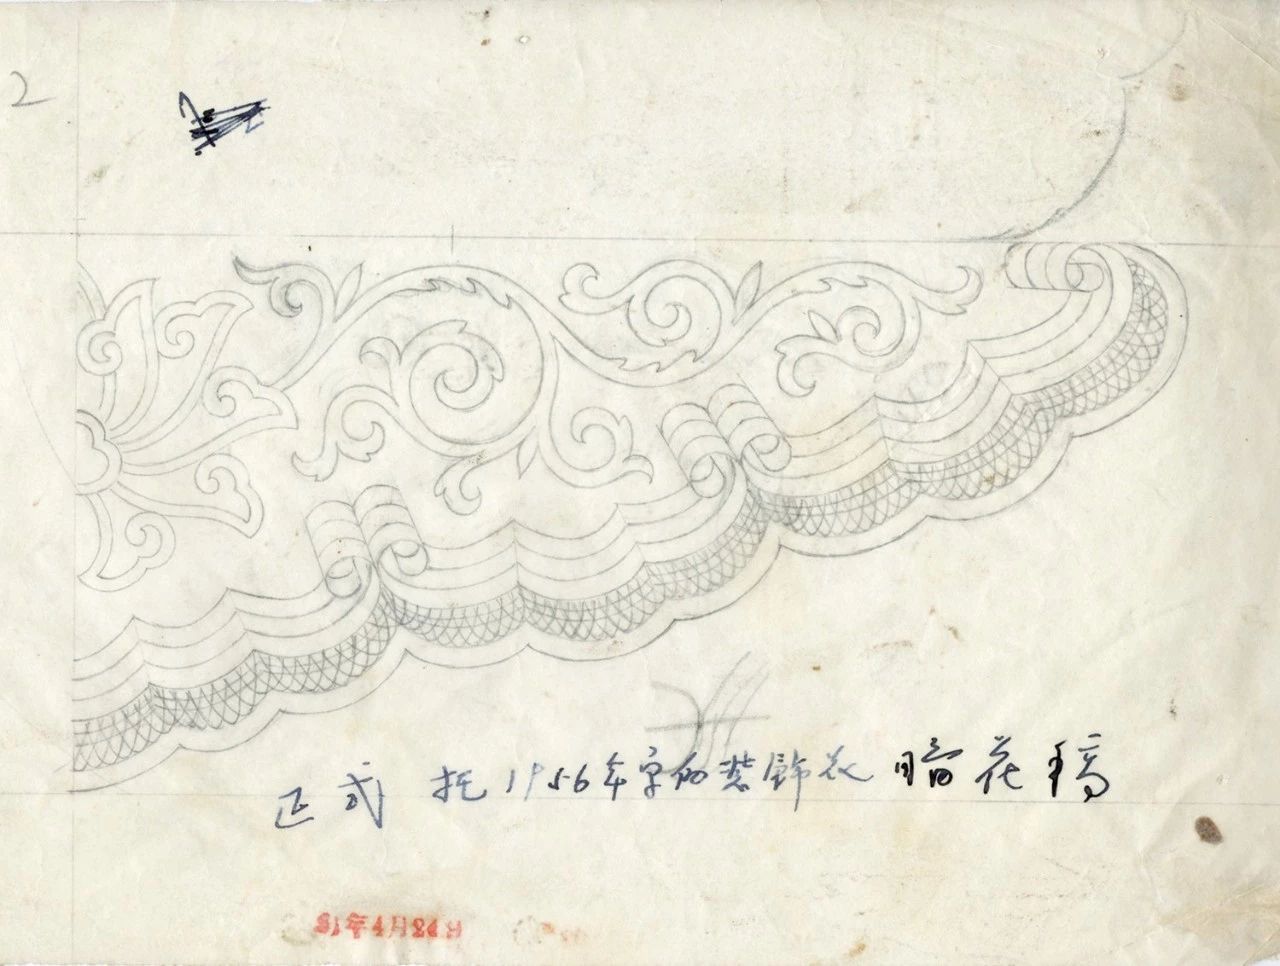 2
正式 托1956年字的装飾花 暗花稿
51年4月24日